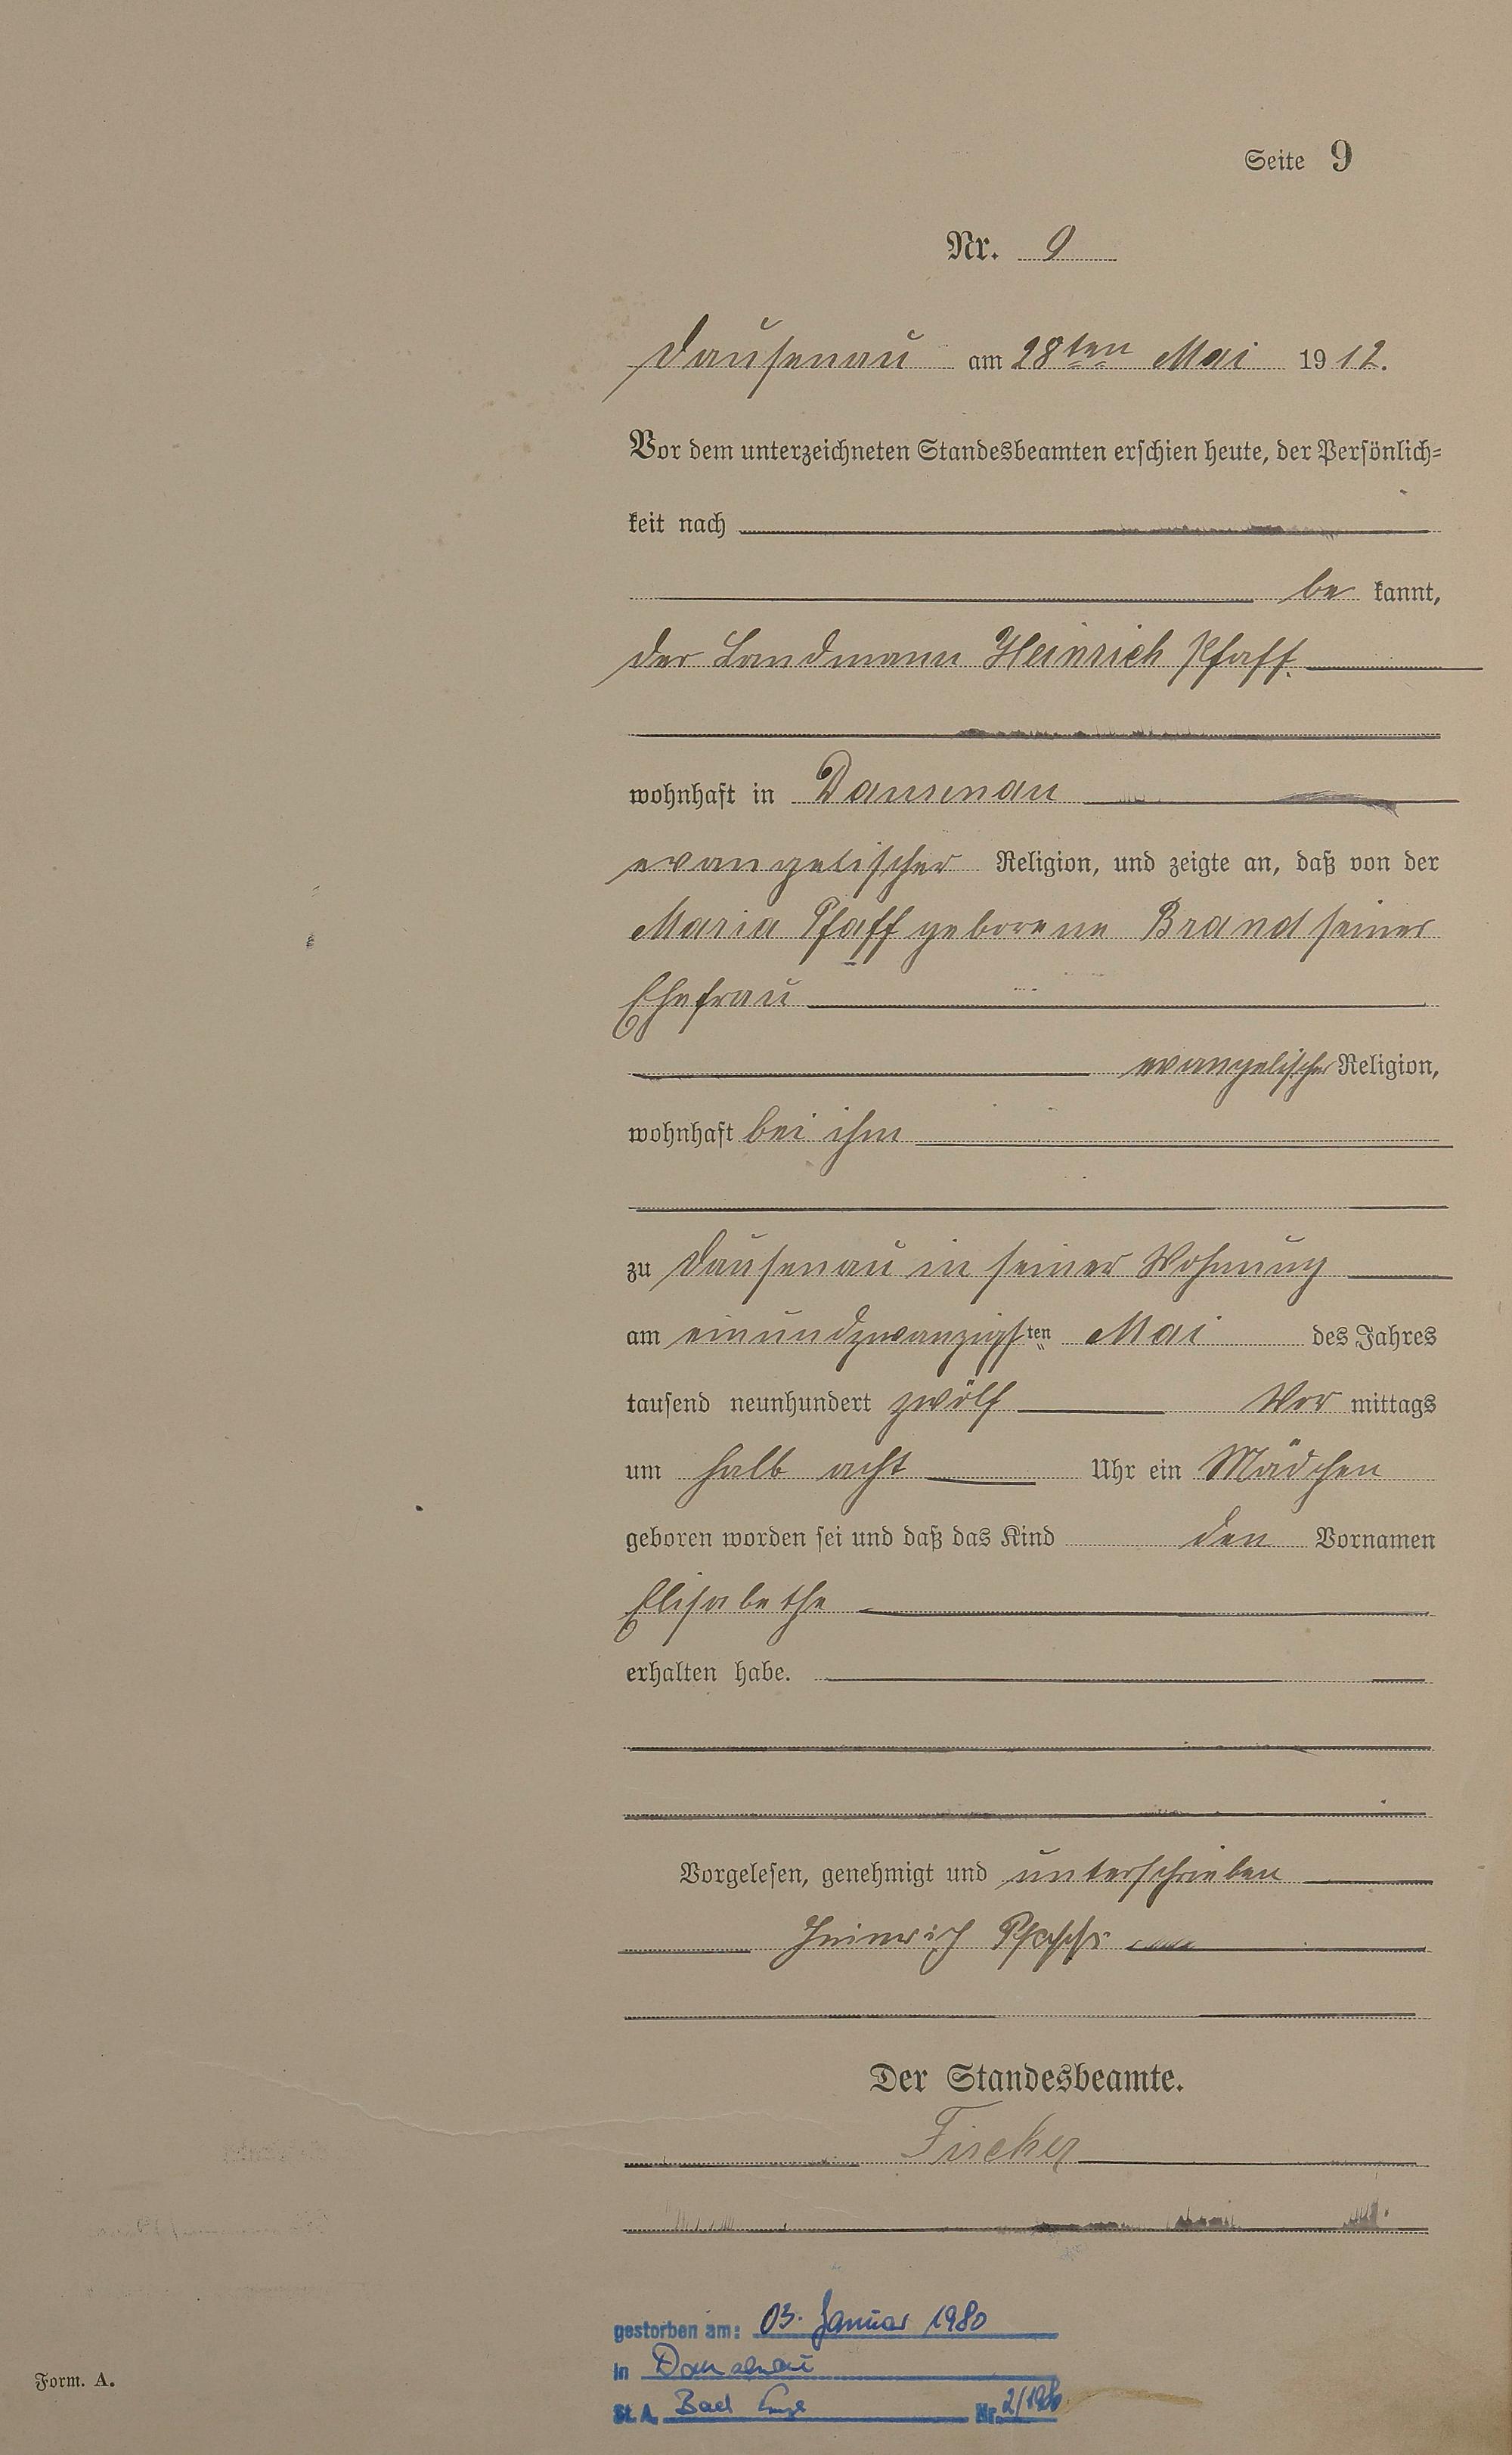 Seite 9
Nr. 9
Dausenau am 28ten Mai 1912.
Vor dem unterzeichneten Standesbeamten erschien heute, der Persönlich-
keit nach
be kannt,
der Landmann Heinrich Pfaff.
wohnhaft in Dausenau
evangelischer Religion, und zeigte an, daß von der
Maria Pfaff geborene Brand seiner
Ehefrau
evangelischer Religion,
wohnhaft bei ihm
zu Dausenau in seiner Wohnung
am einundzwanzigsten Mai des Jahres
tausend neunhundert zwölf Vor mittags
um halb acht Uhr ein Mädchen
geboren worden sei und daß das Kind den Vornamen
Elisabethe
erhalten habe.
Vorgelesen, genehmigt und unterschrieben
Heinrich Pfaff
Der Standesbeamte.
Fischer
gestorben am: 03. Januar 1980
in Dausenau
St. A. Bad Ems Nr. 2/1980
Form. A.